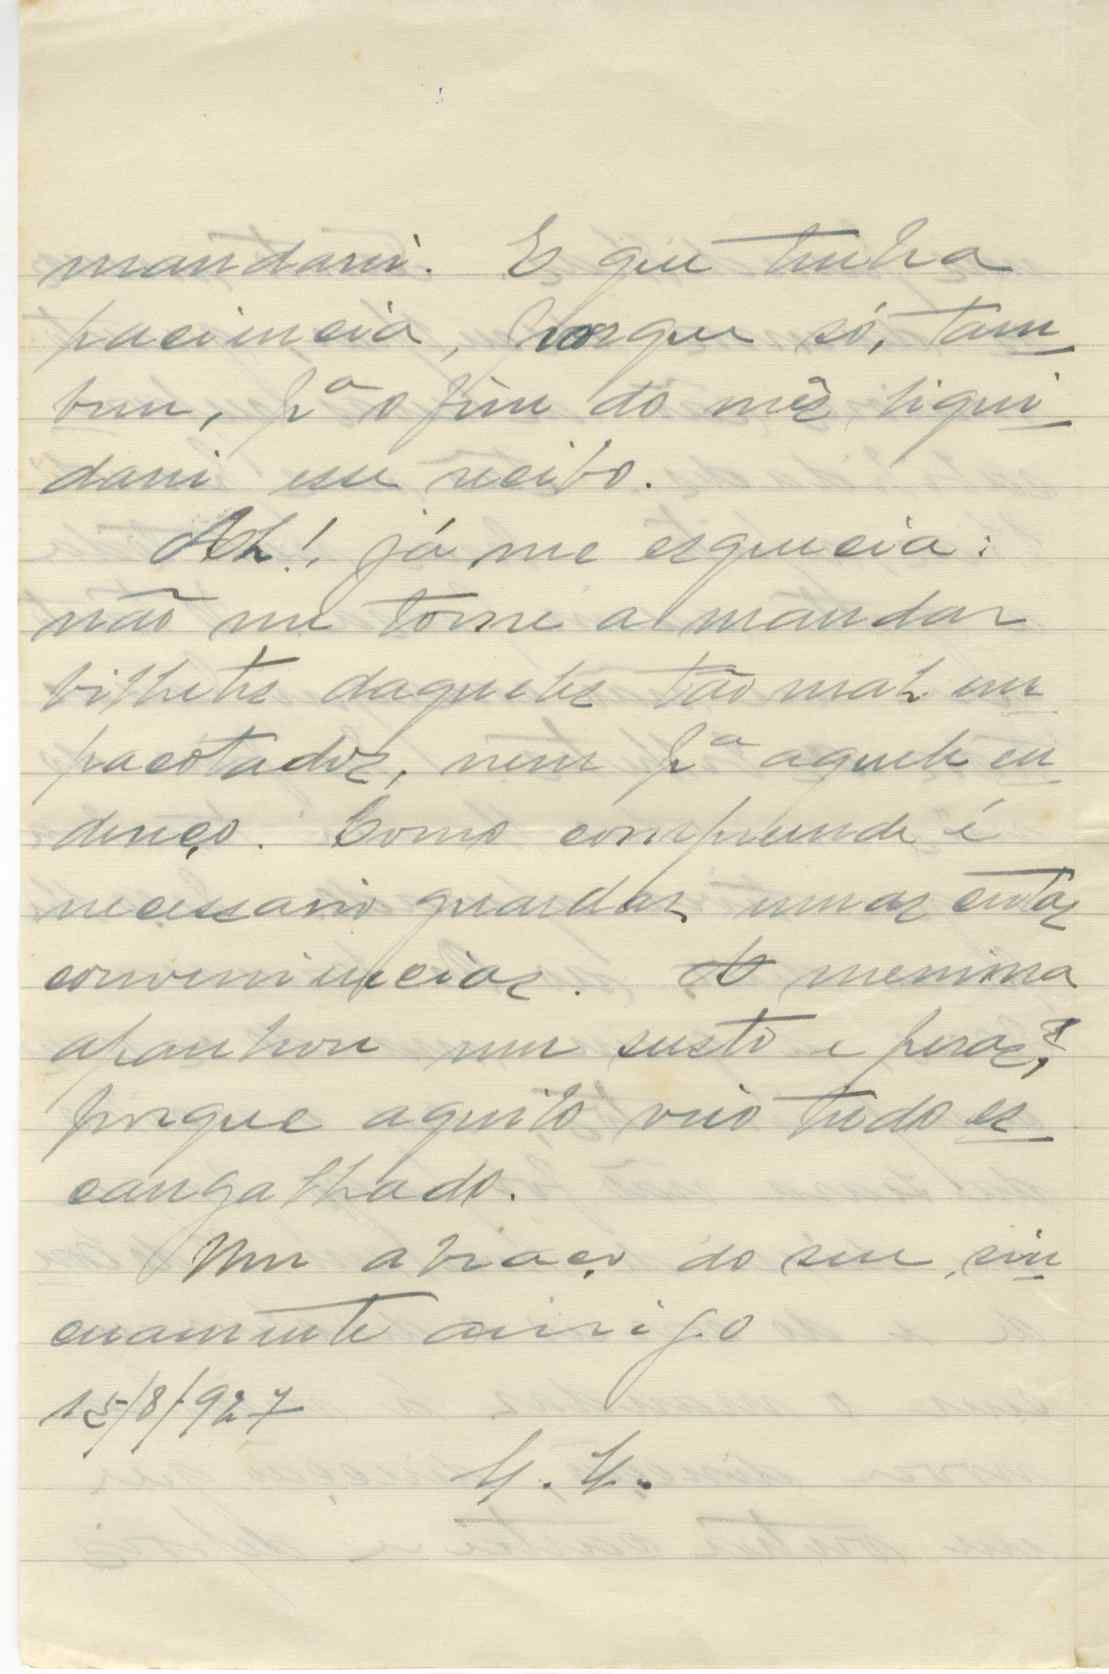 mandarei. E que tenha
paciencia, porque só, tam
bem, pª o fim do mês liqui
darei esse recibo.
Ah! já me esquecia:
não me torne a mandar
bilhetes daqueles tão mal em
pacotados, nem pª aquele en
dereço. Como compreende é
necessario guardar umas certas
conveniencias. A menina
apanhou um susto e peras,
porque aquilo veio tudo es
cangalhado.
Um abraço do seu, sin
ceramente amigo
15/8/927